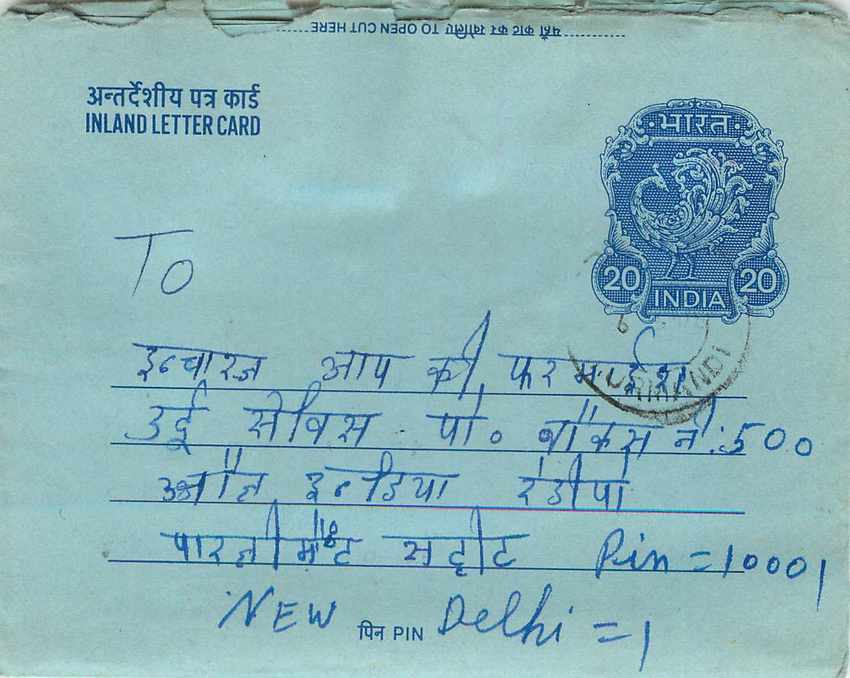 यहाँ काट कर खोलिए TO OPEN CUT HERE
अन्तर्देशीय पत्र कार्ड
INLAND LETTER CARD
भारत
20 20
INDIA
To
इन्चारज आप की फरमाईश
उर्दू सर्विस पो. बॉकस नं:500
ऑल इन्डिया रेडीयो
पारलीमेंट सट्रीट Pin=10001
NEW Delhi=1
पिन PIN